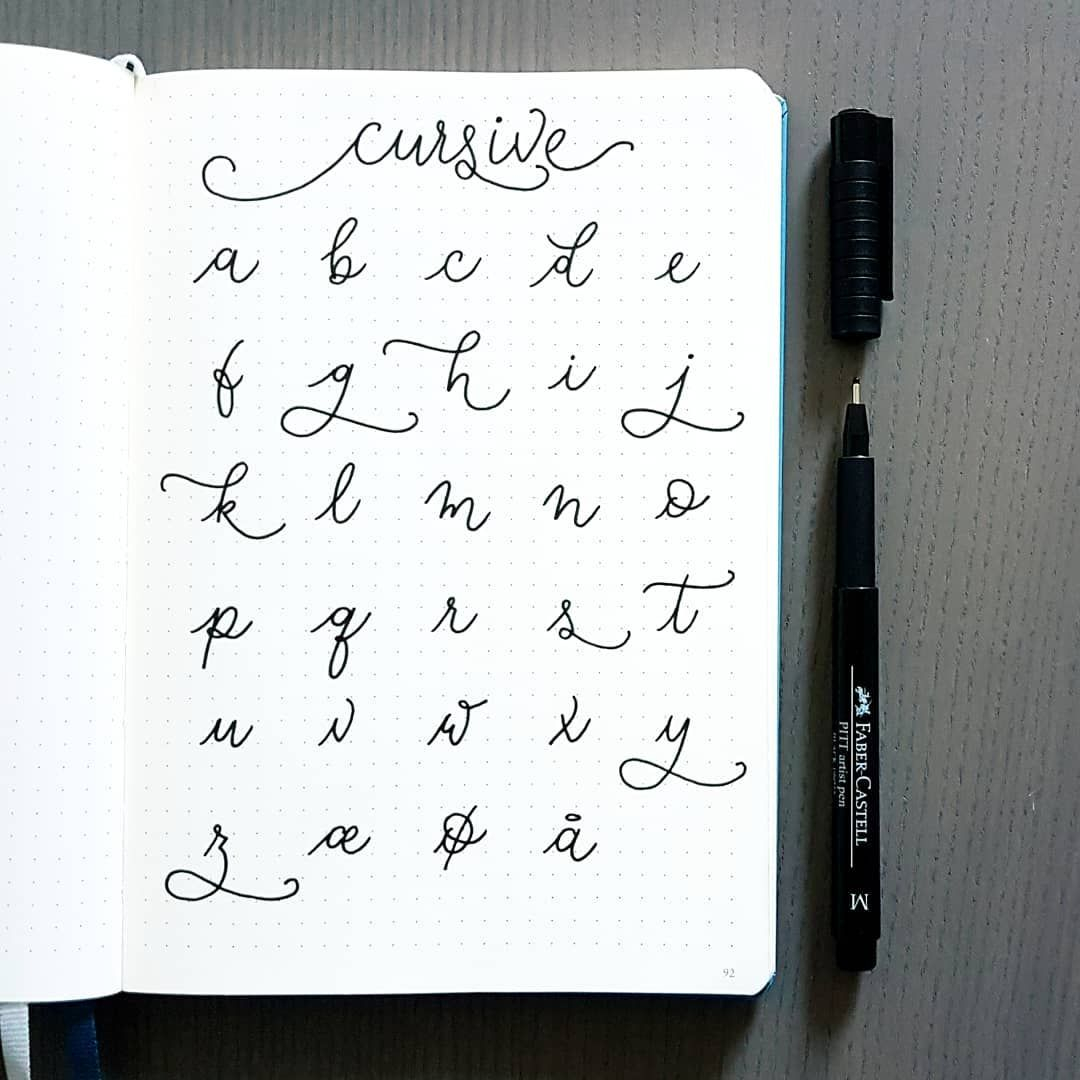 cursive
a b c d e
f g h i j
k l m n o
p q r s t
u v w x y
z æ ø å
92
FABER-CASTELL
PITT artist pen
M